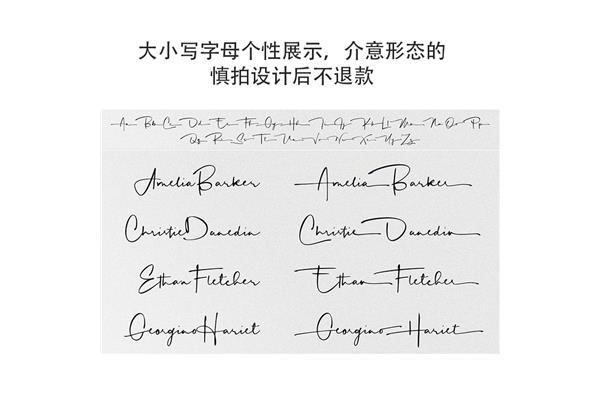 大小写字母个性展示，介意形态的
慎拍设计后不退款
Aa Bb Cc Dd Ee Ff Gg Hh Ii Jj Kk Ll Mm Nn Oo Pp
Qq Rr Ss Tt Uu Vv Ww Xx Yy Zz
Amelia Barker Amelia Barker
Christie Dunedin Christie Dunedin
Ethan Fletcher Ethan Fletcher
Georgino Hariet Georgino Hariet